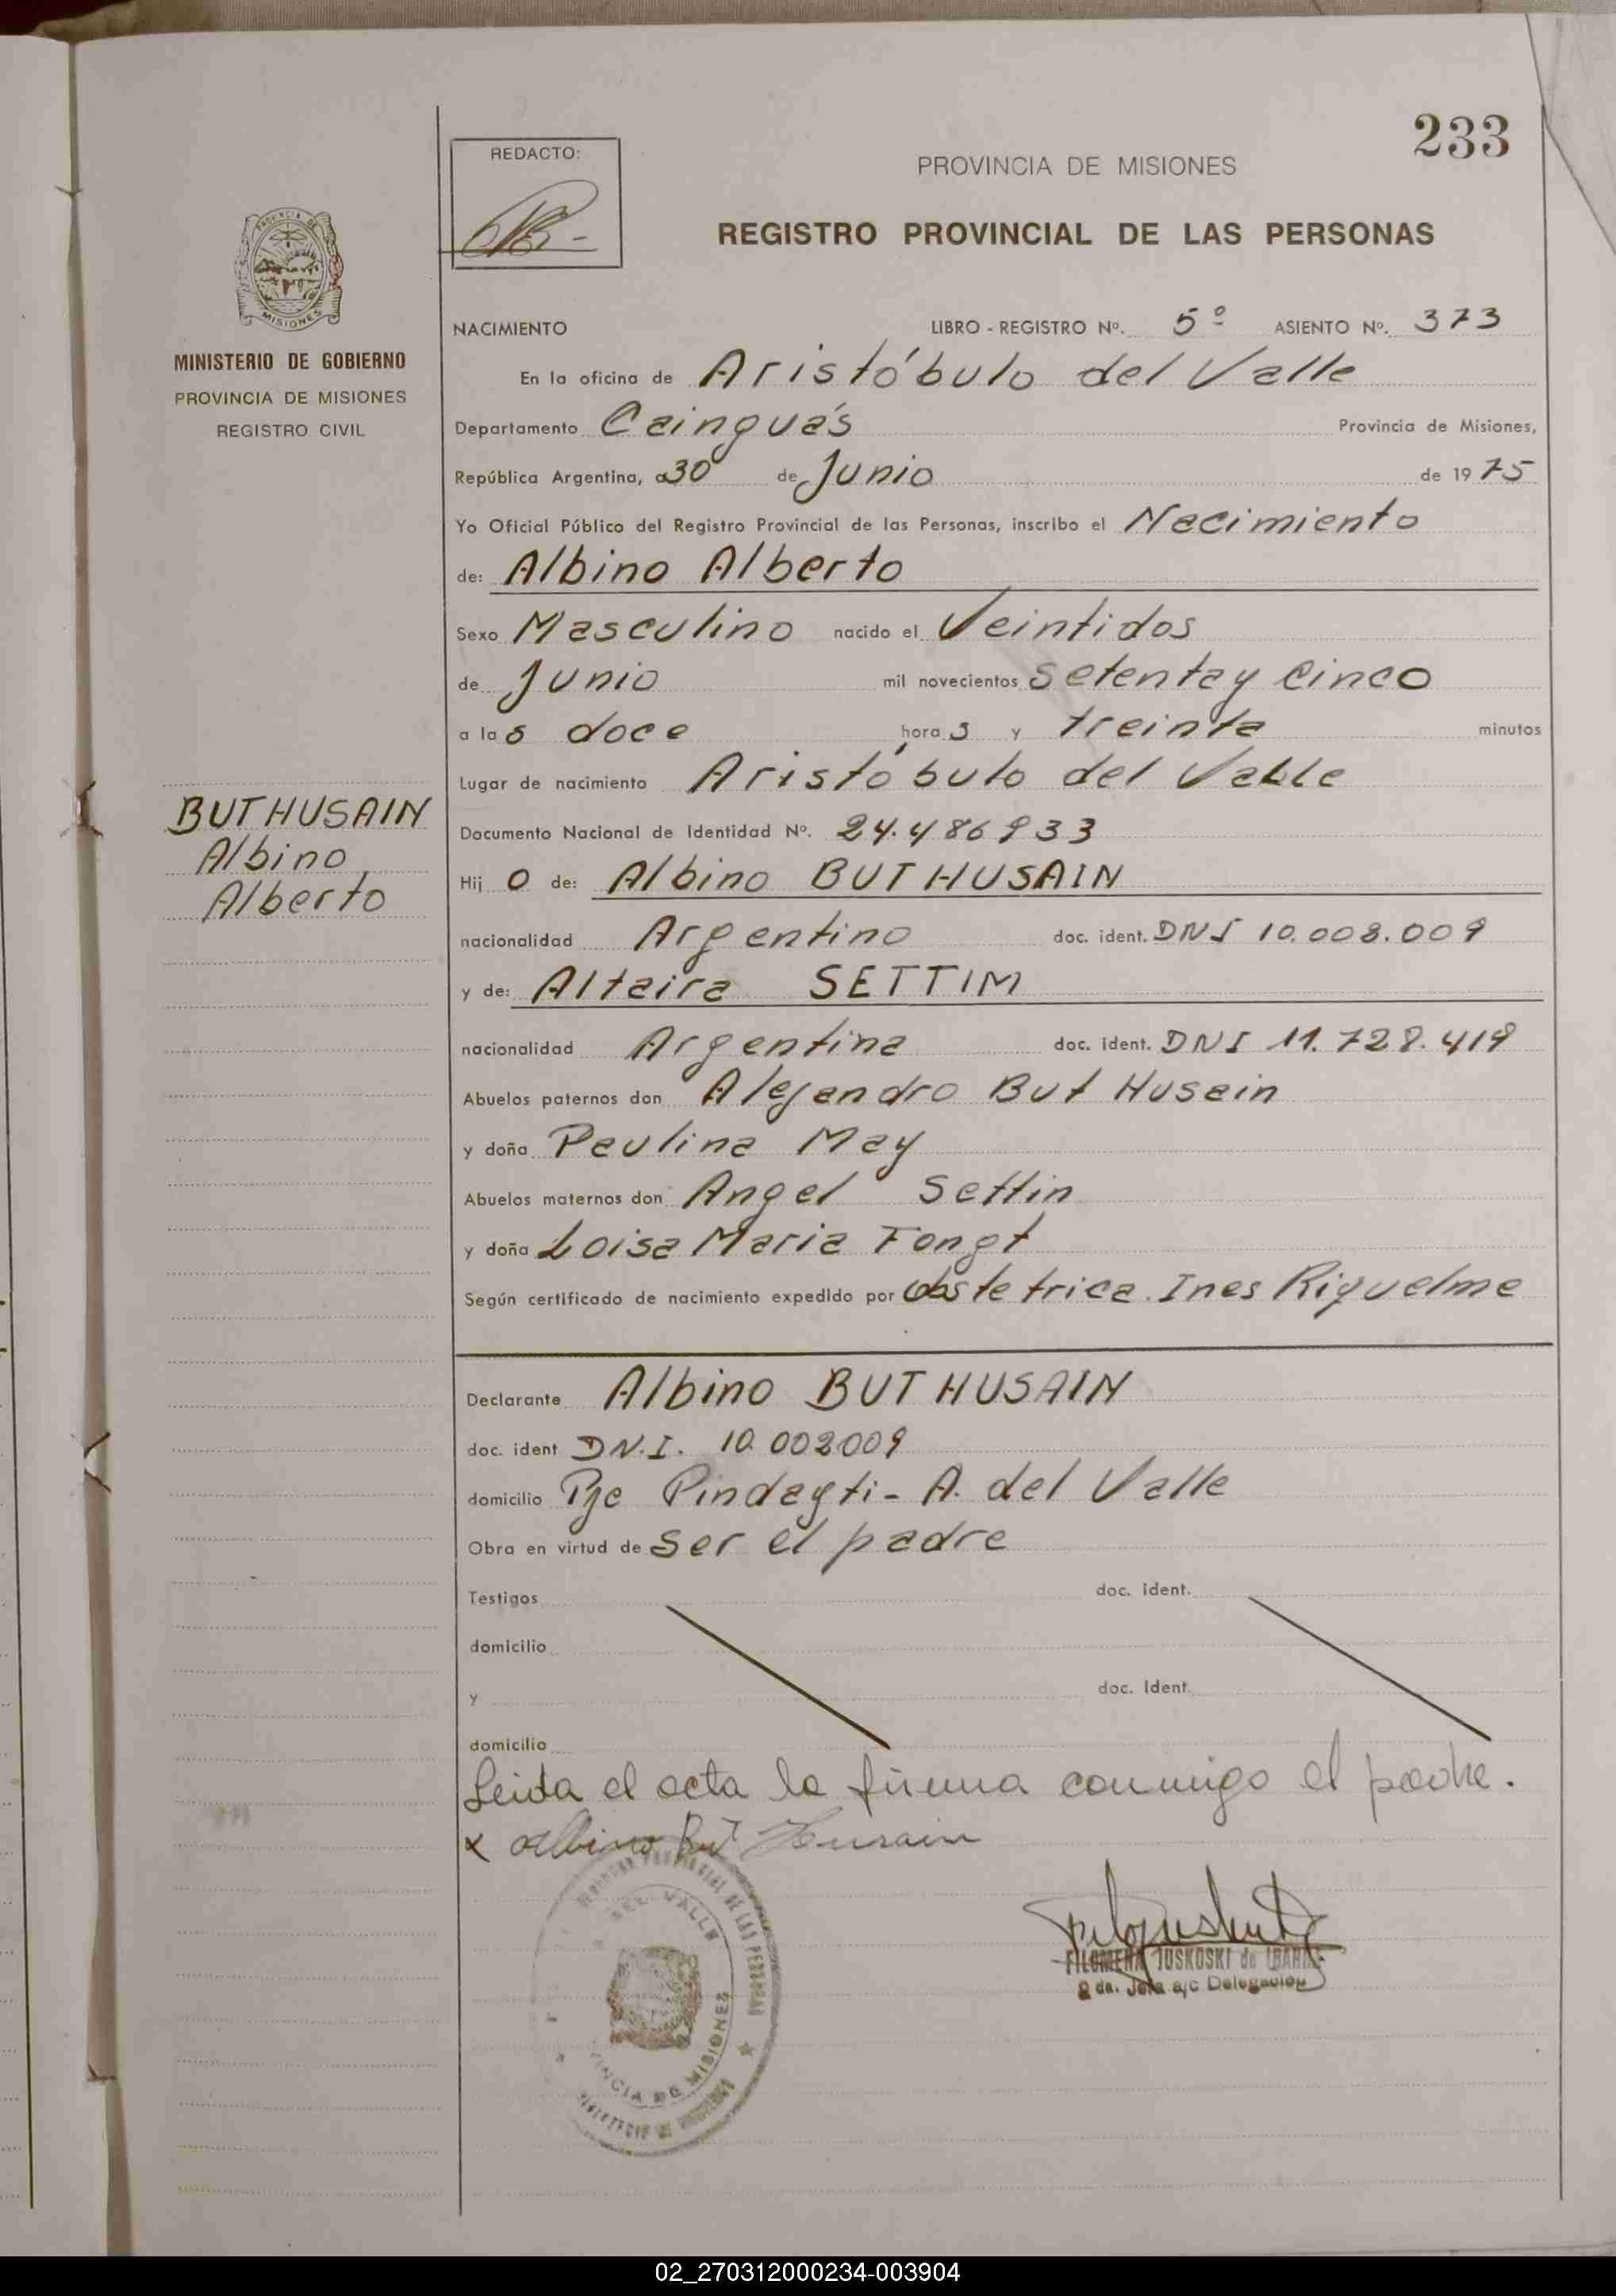 233
REDACTO:
PROVINCIA DE MISIONES
REGISTRO PROVINCIAL DE LAS PERSONAS
PROVINCIA DE
MISIONES
MINISTERIO DE GOBIERNO
PROVINCIA DE MISIONES
REGISTRO CIVIL
NACIMIENTO LIBRO - REGISTRO Nº. 5º ASIENTO Nº. 373
En la oficina de Aristóbulo del Valle
Departamento Cainguás Provincia de Misiones,
República Argentina, a 30 de Junio de 1975
Yo Oficial Público del Registro Provincial de las Personas, inscribo el Nacimiento
de: Albino Alberto
Sexo Masculino nacido el Veintidos
de Junio mil novecientos Setenta y Cinco
a las doce horas y treinta minutos
Lugar de nacimiento Aristóbulo del Valle
BUT HUSAIN
Albino
Alberto
Documento Nacional de Identidad Nº. 24.486933
Hijo de: Albino BUT HUSAIN
nacionalidad Argentino doc. ident. DNI 10.008.009
y de: Altaira SETTIM
nacionalidad Argentina doc. ident. DNI 11.728.419
Abuelos paternos don Alejandro But Husain
y doña Paulina May
Abuelos maternos don Angel Settin
y doña Loisa Maria Fongt
Según certificado de nacimiento expedido por obstetrica. Ines Riquelme
Declarante Albino BUT HUSAIN
doc. ident D.N.I. 10.002009
domicilio Pje Pindayti - A. del Valle
Obra en virtud de ser el padre
Testigos doc. ident.
domicilio
y doc. Ident.
domicilio
Leida el acta la firma conmigo el padre.
x Albino But Husain
DEL VALLE
DE LAS PERSONAS
PROVINCIA DE MISIONES
FILOMENA JUSKOSKI de IBARRA
2da. Jefa a/c Delegación
02_270312000234-003904